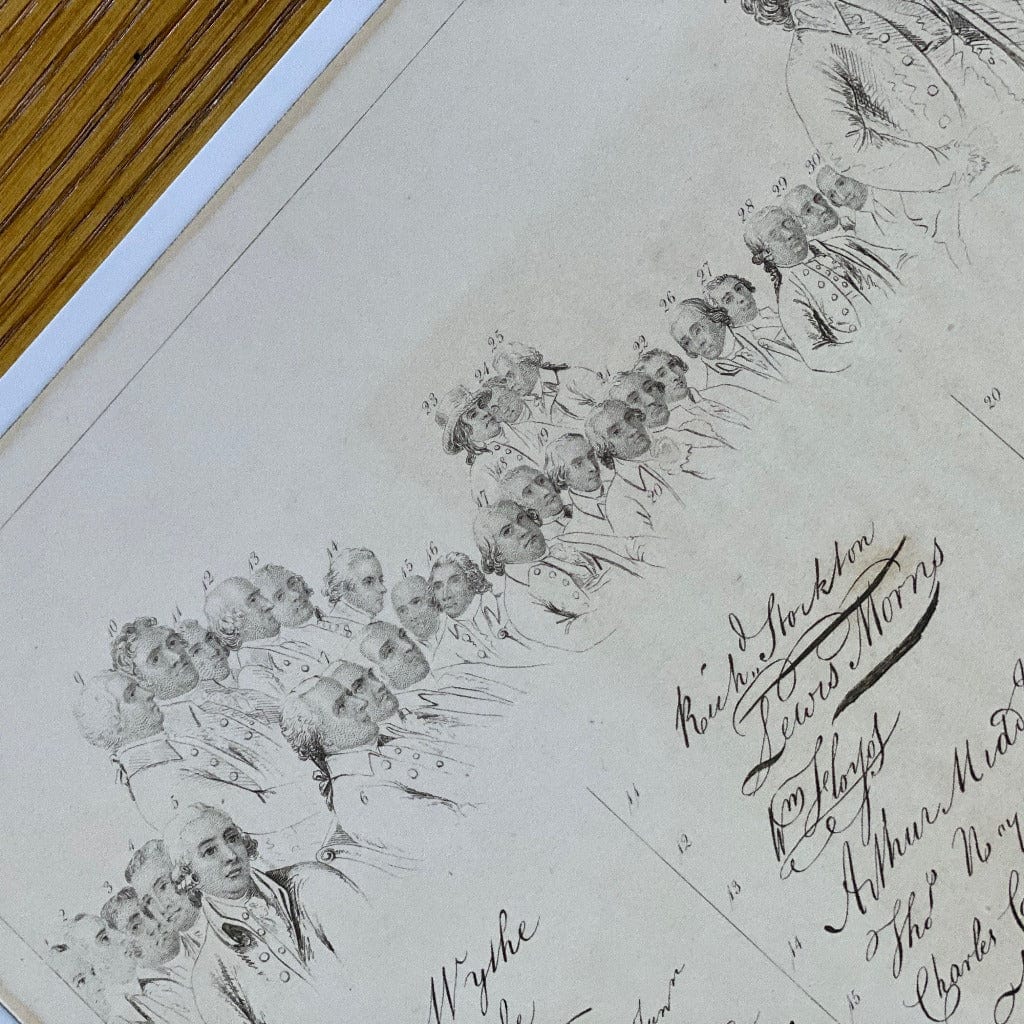 30
29
28
27
26
25
24
23
22
19
18
20
17
16
15
13
12
11
10
8
6
5
4
3
2
20
Richd. Stockton
Lewis Morris
Wm Floyd
Arthur Midd
Thos
Charles C
Wythe
11
12
13
14
15